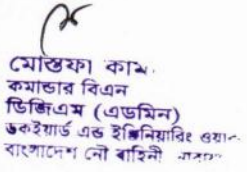 মোস্তফা কাম
কমান্ডার বিএন
ডিজিএম (এডমিন)
ডকইয়ার্ড এন্ড ইঞ্জিনিয়ারিং ওয়া
বাংলাদেশ নৌ বাহিনী